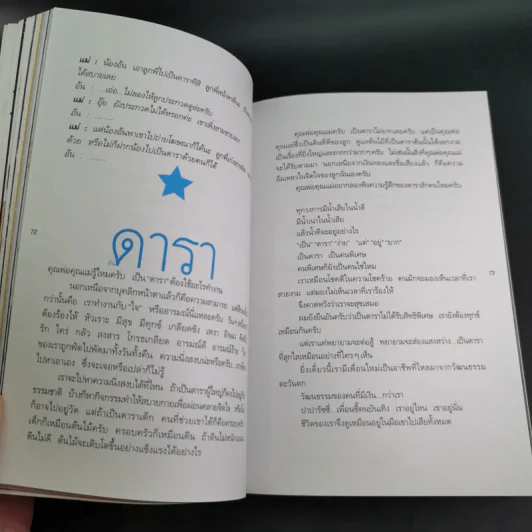 แม่ : น้องอัน เอาลูกพี่ไปเป็นดาราทีสิ ลูกพี่หน้าตาดีนะ
ได้สบายเลย
อัน : ....เอ่อ...ไม่ลองให้ลูกประกวดดูล่ะครับ
แม่ : อุ๊ย ยังประกวดไม่ได้หรอกค่ะ เขาเด็กเกินไป
อัน : ........
แม่ : แต่น้องอันพาเขาไปถ่ายโฆษณาก็ได้นะ ลูกพี่เก่ง
ด้วย หรือไม่ก็ฝากน้องไปเป็นดาราด้วยคนก็ได้
อัน : ........
72
ดารา
คุณพ่อคุณแม่รู้ไหมครับ เป็น "ดารา" ต้องใช้อะไรทำงาน
นอกเหนือจากบุคลิกหน้าตาแล้วก็คือความสามารถ แต่ลึก
กว่านั้นคือ เราทำงานกับ "ใจ" หรืออารมณ์นี่แหละครับ วันๆ
ต้องร้องไห้ หัวเราะ มีสุข มีทุกข์ เกลียดชัง เหงา อิจฉา
รัก ใคร่ กลัว สงสาร โกรธเกลียด อารมณ์ดี อารมณ์ร้าย
ของเราถูกพัดไปพัดมาทั้งวันทั้งคืน ความนิ่งสงบน่ะหรือครับ
ไปหาเอาเอง ซึ่งจะเจอหรือเปล่าก็ไม่รู้
เราจะไปหาความนิ่งสงบได้ที่ไหน ถ้าเป็นดาราผู้ใหญ่ก็คงไปอยู่กับ
ธรรมชาติ บ้างก็หากิจกรรมทำให้สบายกายเพื่อผ่อนคลายจิตใจ
ก็อาจไปอยู่วัด แต่ถ้าเป็นดาราเด็ก คนที่ช่วยเขาได้ก็คือครอบครัว
เด็กก็เหมือนต้นไม้ครับ ครอบครัวก็เหมือนดิน ถ้าดินไม่หนักแน่น
ดินไม่ดี ต้นไม้จะเติบโตขึ้นอย่างแข็งแรงได้อย่างไร
คุณพ่อคุณแม่ครับ เป็นดาราไม่ยากเลยครับ แต่เป็นคุณพ่อ
คุณแม่ซึ่งเป็นดินที่ดีของลูก ดูแลต้นไม้ที่เป็นดาราต้นนั้นให้งอกงาม
เป็นเรื่องที่ยิ่งใหญ่และยากกว่ามากๆครับ ไม่เช่นนั้นสิ่งที่คุณพ่อคุณแม่
จะได้รับตามมา นอกเหนือจากเงินทองและชื่อเสียงแล้ว ก็คือความ
ล้มเหลวในจิตใจของลูกนั่นเองครับ
คุณพ่อคุณแม่อยากลองฟังความรู้สึกของดาราสักคนไหมครับ
ทุกวงการมีน้ำเสียในน้ำดี
มีน้ำเน่าในน้ำเสีย
แล้วน้ำดีจะอยู่อย่างไร
"เป็น" "ดารา" "ง่าย" "แต่" "อยู่" "ยาก"
เป็นดารา เป็นคนพิเศษ
คนพิเศษก็ยังเป็นคนใช่ไหม
เราเหมือนโชคดีในความโชคร้าย คนมักจะมองเห็นเวลาที่เรา
สวยงาม แต่มองไม่เห็นเวลาที่เราร้องไห้
จึงคาดหวังว่าเราจะสุขเสมอ
ผมยังยืนยันครับว่าเป็นดาราไม่ได้รับสิทธิพิเศษ เรายังต้องทุกข์
เหมือนกันครับ
แต่เราแค่พยายามจะต่อสู้ พยายามจะส่องแสงสว่าง เป็นดารา
ที่สุกใสเหมือนอย่างที่ใครๆเห็น
ยิ่งเดี๋ยวนี้เรามีเพื่อนใหม่เป็นอาชีพที่ไหลมาจากวัฒนธรรม
ตะวันตก
วัฒนธรรมของคนที่มีเงิน...กว่าเรา
ปาปารัซซี่...เพื่อนซี้คนบันเทิง เราอยู่ไหน เราอยู่นั่น
ชีวิตของเราจึงดูเหมือนอยู่ในมือเขาไปเสียทั้งหมด
73